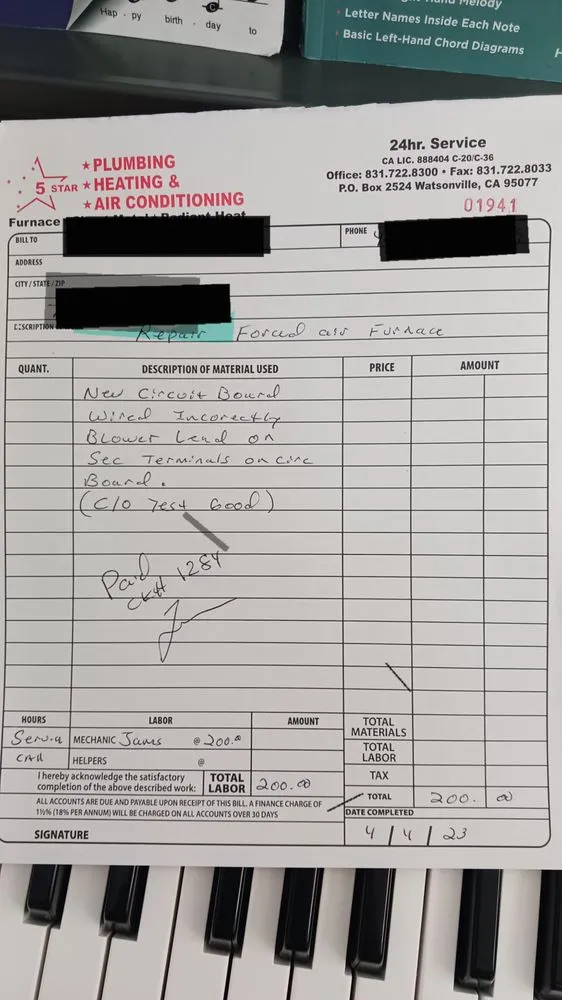 Hap - py birth - day to
Melody
• Letter Names Inside Each Note
• Basic Left-Hand Chord Diagrams
5 STAR
★ PLUMBING
★ HEATING &
★ AIR CONDITIONING
24hr. Service
CA LIC. 888404 C-20/C-36
Office: 831.722.8300 • Fax: 831.722.8033
P.O. Box 2524 Watsonville, CA 95077
01941
Furnace Radiant Heat
BILL TO
PHONE
ADDRESS
CITY / STATE / ZIP
DESCRIPTION
Repair Forced air Furnace
QUANT. DESCRIPTION OF MATERIAL USED PRICE AMOUNT
New Circuit Board
Wired Incorectly
Blower Lead on
Sec Terminals on Circ
Board.
(C/O Test Good)
Paid
CK# 1284
HOURS LABOR AMOUNT
Service MECHANIC James @ 200.00
Call HELPERS @
I hereby acknowledge the satisfactory
completion of the above described work:
TOTAL LABOR 200.00
ALL ACCOUNTS ARE DUE AND PAYABLE UPON RECEIPT OF THIS BILL. A FINANCE CHARGE OF
1½% (18% PER ANNUM) WILL BE CHARGED ON ALL ACCOUNTS OVER 30 DAYS
SIGNATURE
TOTAL MATERIALS
TOTAL LABOR
TAX
TOTAL 200. 00
DATE COMPLETED
4 / 4 / 23